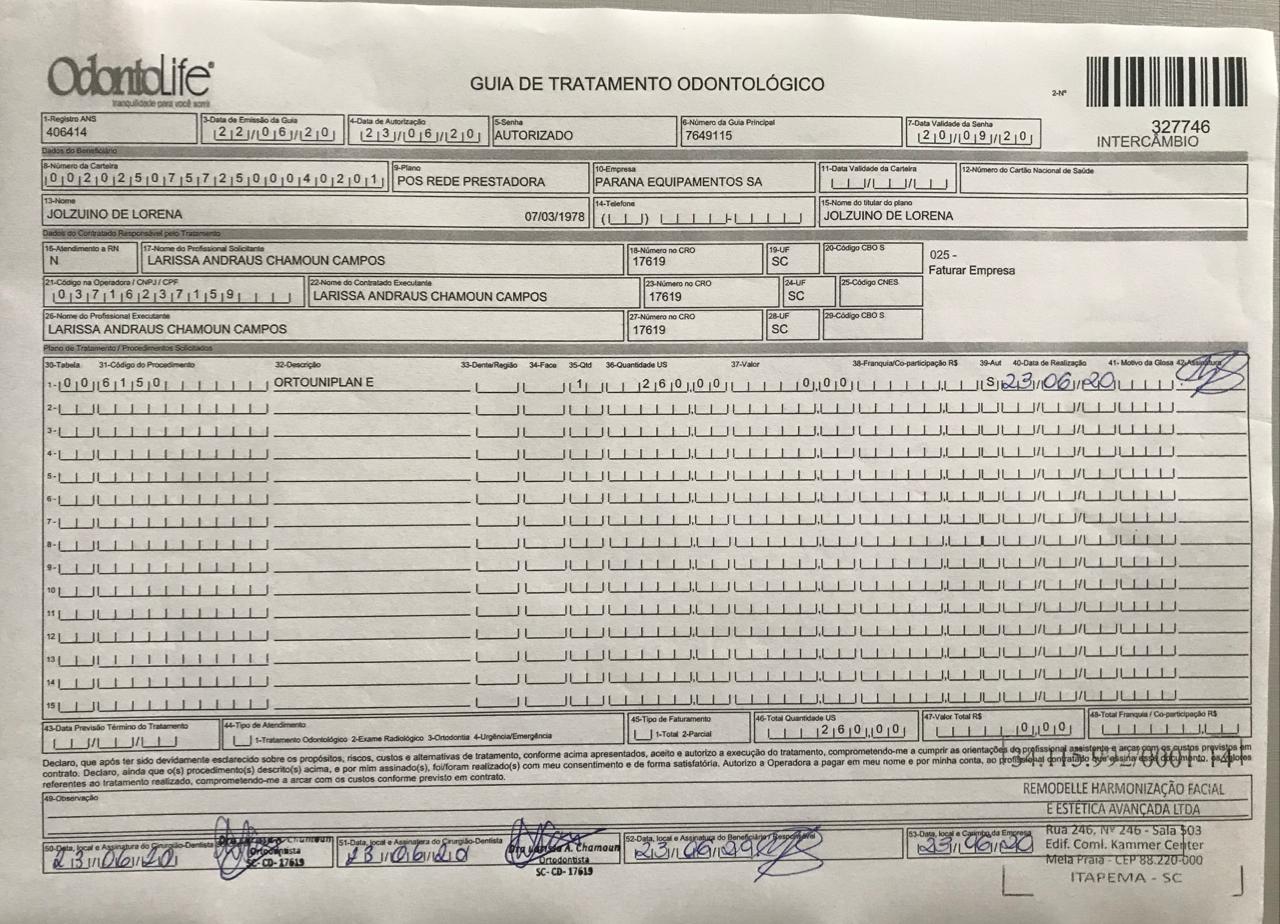 OdontoLife®
tranquilidade para você sorrir
GUIA DE TRATAMENTO ODONTOLÓGICO
2-Nº
327746
INTERCÂMBIO
1-Registro ANS
406414
3-Data de Emissão da Guia
22/06/20
4-Data de Autorização
23/06/20
5-Senha
AUTORIZADO
6-Número da Guia Principal
7649115
7-Data Validade da Senha
20/09/20
Dados do Beneficiário
8-Número da Carteira
00202507572500040201
9-Plano
POS REDE PRESTADORA
10-Empresa
PARANA EQUIPAMENTOS SA
11-Data Validade da Carteira
12-Número do Cartão Nacional de Saúde
13-Nome
JOLZUINO DE LORENA 07/03/1978
14-Telefone
15-Nome do titular do plano
JOLZUINO DE LORENA
Dados do Contratado Responsável pelo Tratamento
16-Atendimento a RN
N
17-Nome do Profissional Solicitante
LARISSA ANDRAUS CHAMOUN CAMPOS
18-Número no CRO
17619
19-UF
SC
20-Código CBO S
025 -
Faturar Empresa
21-Código na Operadora / CNPJ / CPF
03716237159
22-Nome do Contratado Executante
LARISSA ANDRAUS CHAMOUN CAMPOS
23-Número no CRO
17619
24-UF
SC
25-Código CNES
26-Nome do Profissional Executante
LARISSA ANDRAUS CHAMOUN CAMPOS
27-Número no CRO
17619
28-UF
SC
29-Código CBO S
Plano de Tratamento / Procedimentos Solicitados
30-Tabela 31-Código do Procedimento 32-Descrição 33-Dente/Região 34-Face 35-Qtd 36-Quantidade US 37-Valor 38-Franquia/Co-participação R$ 39-Aut 40-Data de Realização 41- Motivo da Glosa 42-Assinatura
1- 006150 ORTOUNIPLAN E 1 260,00 0,00 S 23/06/20
2-
3-
4-
5-
6-
7-
8-
9-
10
11
12
13
14
15
43-Data Previsão Término do Tratamento
44-Tipo de Atendimento
1-Tratamento Odontológico 2-Exame Radiológico 3-Ortodontia 4-Urgência/Emergência
45-Tipo de Faturamento
1-Total 2-Parcial
46-Total Quantidade US
260,00
47-Valor Total R$
0,00
48-Total Franquia / Co-participação R$
Declaro, que após ter sido devidamente esclarecido sobre os propósitos, riscos, custos e alternativas de tratamento, conforme acima apresentados, aceito e autorizo a execução do tratamento, comprometendo-me a cumprir as orientações do profissional assistente e arcar com os custos previstos em
contrato. Declaro, ainda que o(s) procedimento(s) descrito(s) acima, e por mim assinado(s), foi/foram realizado(s) com meu consentimento e de forma satisfatória. Autorizo a Operadora a pagar em meu nome e por minha conta, ao profissional contratado que assina esse documento, os valores
referentes ao tratamento realizado, comprometendo-me a arcar com os custos conforme previsto em contrato.
49-Observação
REMODELLE HARMONIZAÇÃO FACIAL
E ESTÉTICA AVANÇADA LTDA
Rua 246, Nº 246 - Sala 503
Edif. Coml. Kammer Center
Meia Praia - CEP 88.220-000
ITAPEMA - SC
50-Data, local e Assinatura do Cirurgião-Dentista
23/06/20
Ortodontista
SC-CD-17619
51-Data, local e Assinatura do Cirurgião-Dentista
23/06/20
Dra Larissa A. Chamoun
Ortodontista
SC-CD-17619
52-Data, local e Assinatura do Beneficiário / Responsável
53-Data, local e Carimbo da Empresa
23/06/20